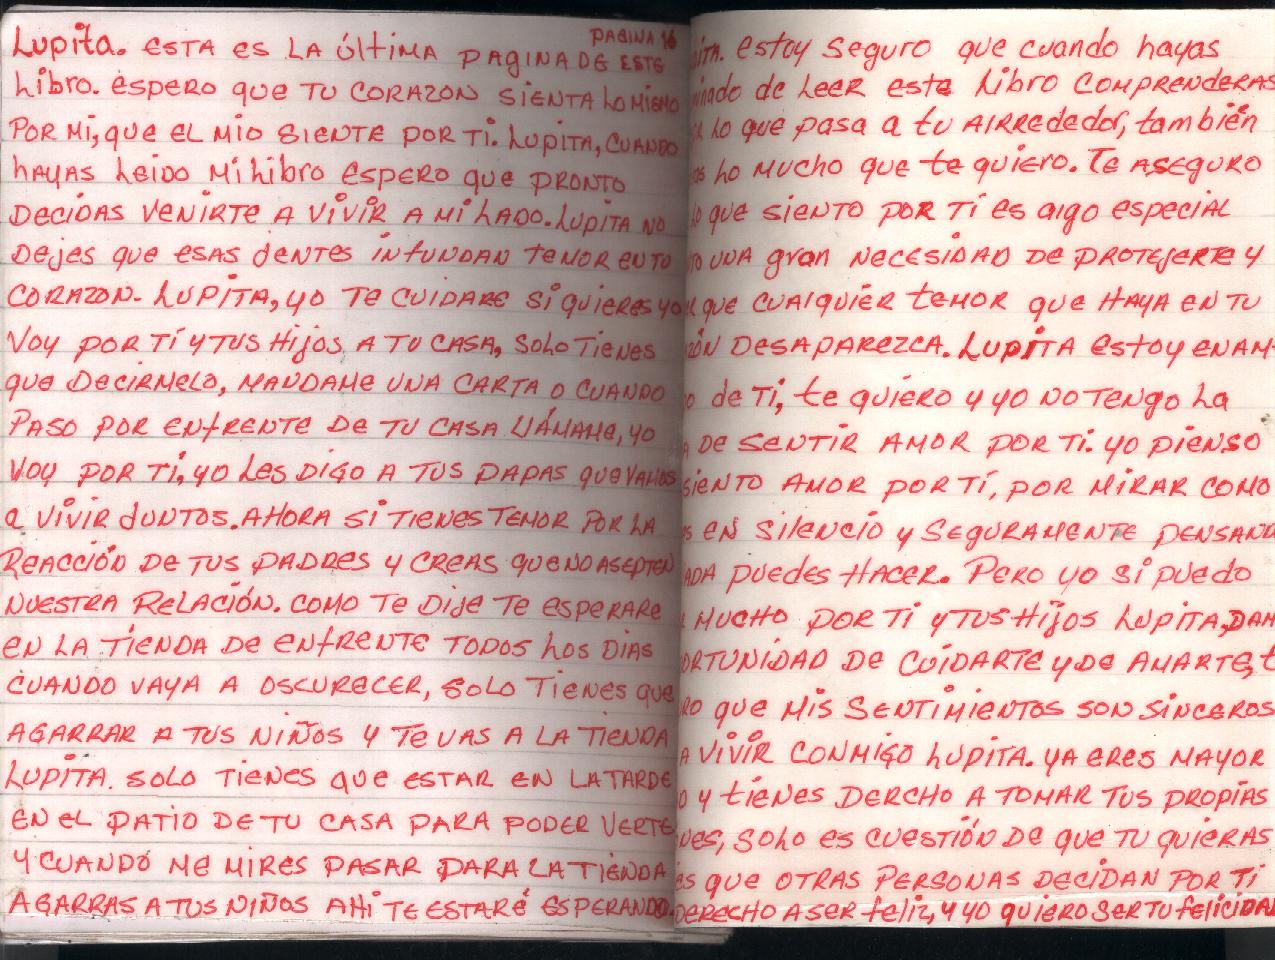 PAGINA 16
Lupita. ESTA ES LA última PAGINA DE ESTE
Libro. ESPERO QUE TU CORAZON SIENTA LO MISMO
POR MI, QUE EL MIO SIENTE POR TI. LUPITA, CUANDO
HAYAS LEIDO MI LIBRO ESPERO QUE PRONTO
DECIDAS VENIRTE A VIVIR A MI LADO. LUPITA NO
DEJES QUE ESAS JENTES INFUNDAN TEMOR EN TU
CORAZON. LUPITA, YO TE CUIDARE SI QUIERES YO
VOY POR TI Y TUS HIJOS A TU CASA, SOLO TIENES
QUE DECIRMELO, MANDAME UNA CARTA O CUANDO
PASO POR ENFRENTE DE TU CASA LLÁMAME, YO
VOY POR TI, YO LES DIGO A TUS PAPAS QUE VAMOS
A VIVIR JUNTOS. AHORA SI TIENES TEMOR POR LA
REACCIÓN DE TUS PADRES Y CREAS QUE NO ASEPTEN
NUESTRA RELACIÓN. COMO TE DIJE TE ESPERARE
EN LA TIENDA DE ENFRENTE TODOS LOS DIAS
CUANDO VAYA A OSCURECER, SOLO TIENES QUE
AGARRAR A TUS NIÑOS Y TE VAS A LA TIENDA
LUPITA. SOLO TIENES QUE ESTAR EN LA TARDE
EN EL PATIO DE TU CASA PARA PODER VERTE
Y CUANDO ME MIRES PASAR PARA LA TIENDA
AGARRAS A TUS NIÑOS AHI TE ESTARÉ ESPERANDO.
pita. Estoy seguro que cuando hayas
inado de LEER este Libro COMPRENDERAS
lo que pasa a tu AIRREDEDOR, también
as lo MUCHO que te quiero. TE ASEGURO
lo que SIENTO POR TI ES algo ESPECIAL
to UNA gran NECESIDAD DE PROTEJERTE Y
r que CUALQUIER TEMOR QUE HAYA EN TU
zón DESAPAREZCA. LUPITA ESTOY ENAM-
o de TI, te quiero y yo NO TENGO LA
a DE SENTIR AMOR POR TI. YO PIENSO
SIENTO AMOR POR TI, POR MIRAR COMO
s EN SILENCIO Y SEGURAMENTE PENSAND
ADA PUEDES HACER. PERO YO SI PUEDO
MUCHO POR TI Y TUS HIJOS LUPITA, DAM
ORTUNIDAD DE CUIDARTE Y DE AMARTE, t
RO QUE MIS SENTIMIENTOS SON SINCEROS
A VIVIR CONMIGO LUPITA. YA ERES MAYOR
D Y TIENES DERCHO A TOMAR TUS PROPIAS
NES, SOLO ES CUESTIÓN DE QUE TU QUIERAS
es QUE OTRAS PERSONAS DECIDAN POR TI
DERECHO A SER feliz, Y YO QUIERO SER TU FELICIDAD